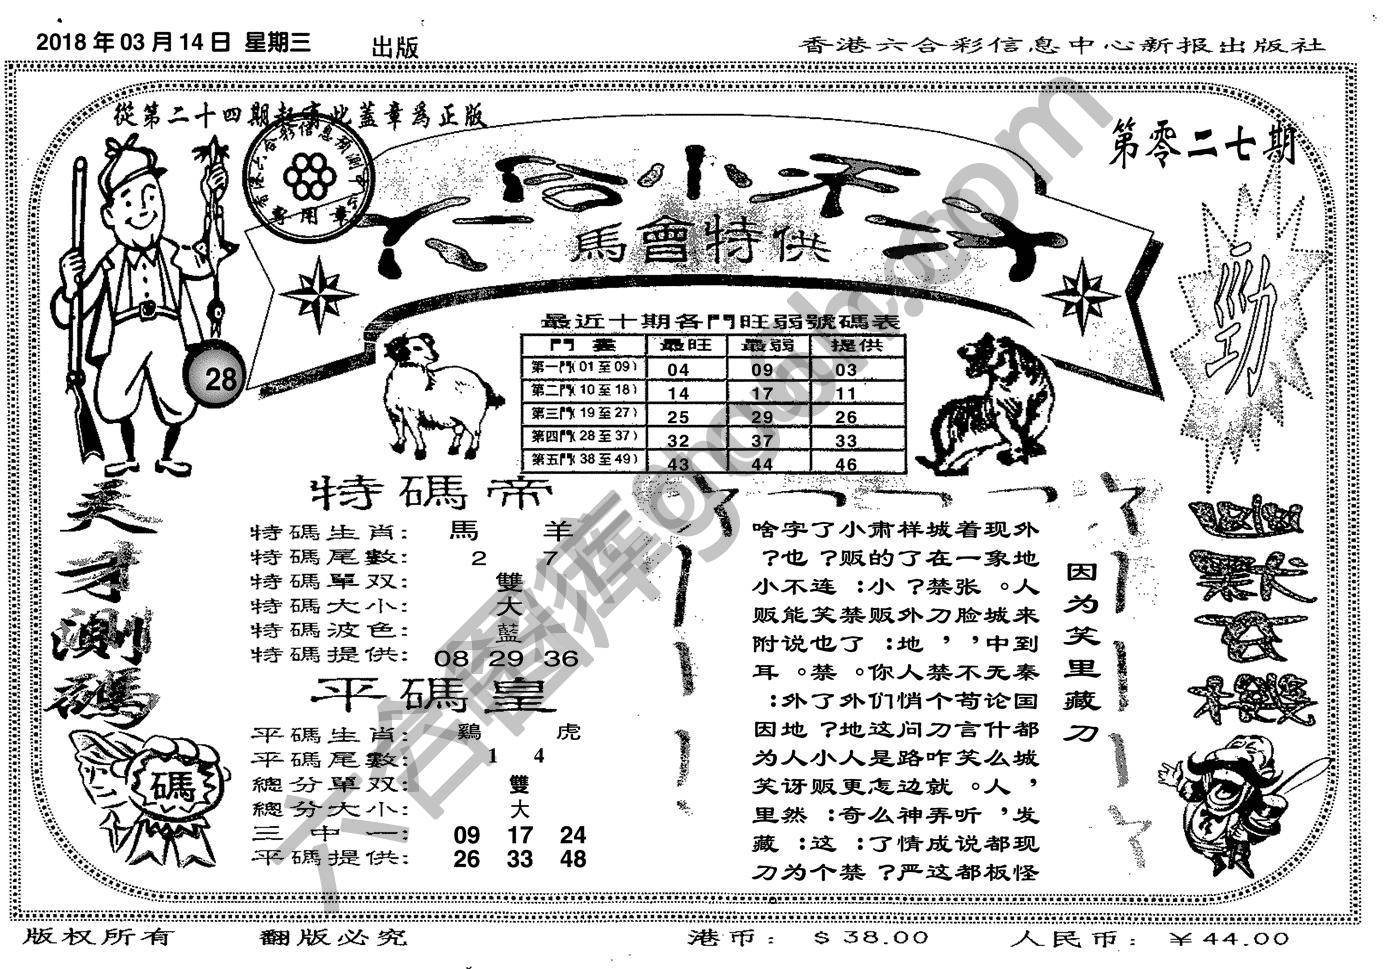 2018 年 03 月 14 日 星期三 出版
香港六合彩信息中心新报出版社
從第二十四期起
此蓋章爲正版
第零二七期
專用章
馬會特供
勁
28
最近十期各門旺弱號碼表
最旺 最弱 提供
第一門(01 至 09) 04 09 03
第二門(10 至 18) 14 17 11
第三門(19 至 27) 25 29 26
第四門(28 至 37) 32 37 33
第五門(38 至 49) 43 44 46
天才測碼
碼
特碼帝
特碼生肖: 馬 羊
特碼尾數: 2 7
特碼單双: 雙
特碼大小: 大
特碼波色: 藍
特碼提供: 08 29 36
平碼皇
平碼生肖: 鷄 虎
平碼尾數: 1 4
總分單双: 雙
總分大小: 大
三中一: 09 17 24
平碼提供: 26 33 48
因为笑里藏刀
外地人来到秦国都城，发现怪
现象。城中无论什么人，都板
着一张脸，不苟言笑。听说都
城在禁刀，禁个刀咋就弄成这
样了？外地人悄问路边神情严
肃的小贩：你们这是怎么了？
小贩：禁了。外地人更奇：禁
了？连笑也禁了？小贩：这个
字也不能说。外地人讶然：为
啥？小贩附耳：因为笑里藏刀
六合图库
版权所有 翻版必究 港币: $ 38.00 人民币: ¥ 44.00